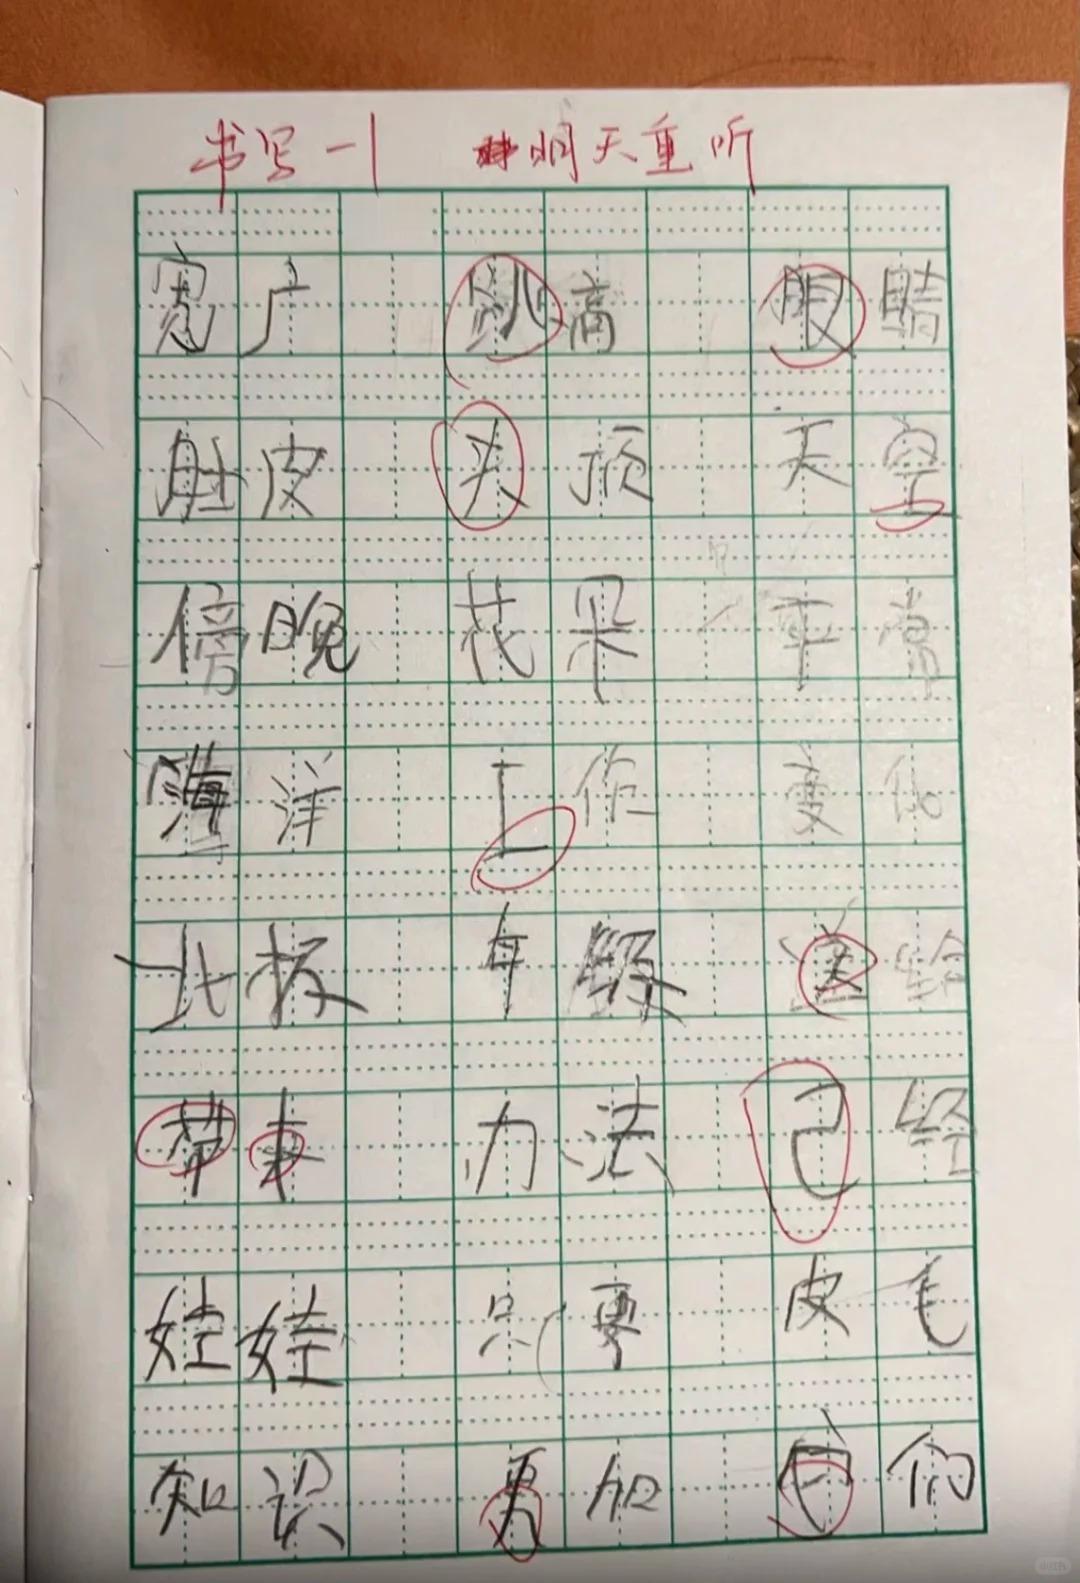 书写-1 明天重听
宽广 跳高 眼睛
肚皮 头顶 天空
傍晚 花朵 平常
海洋 工作 变化
北极 年级 送给
带来 办法 己经
娃娃 只要 皮毛
知识 更加 它们
小红书